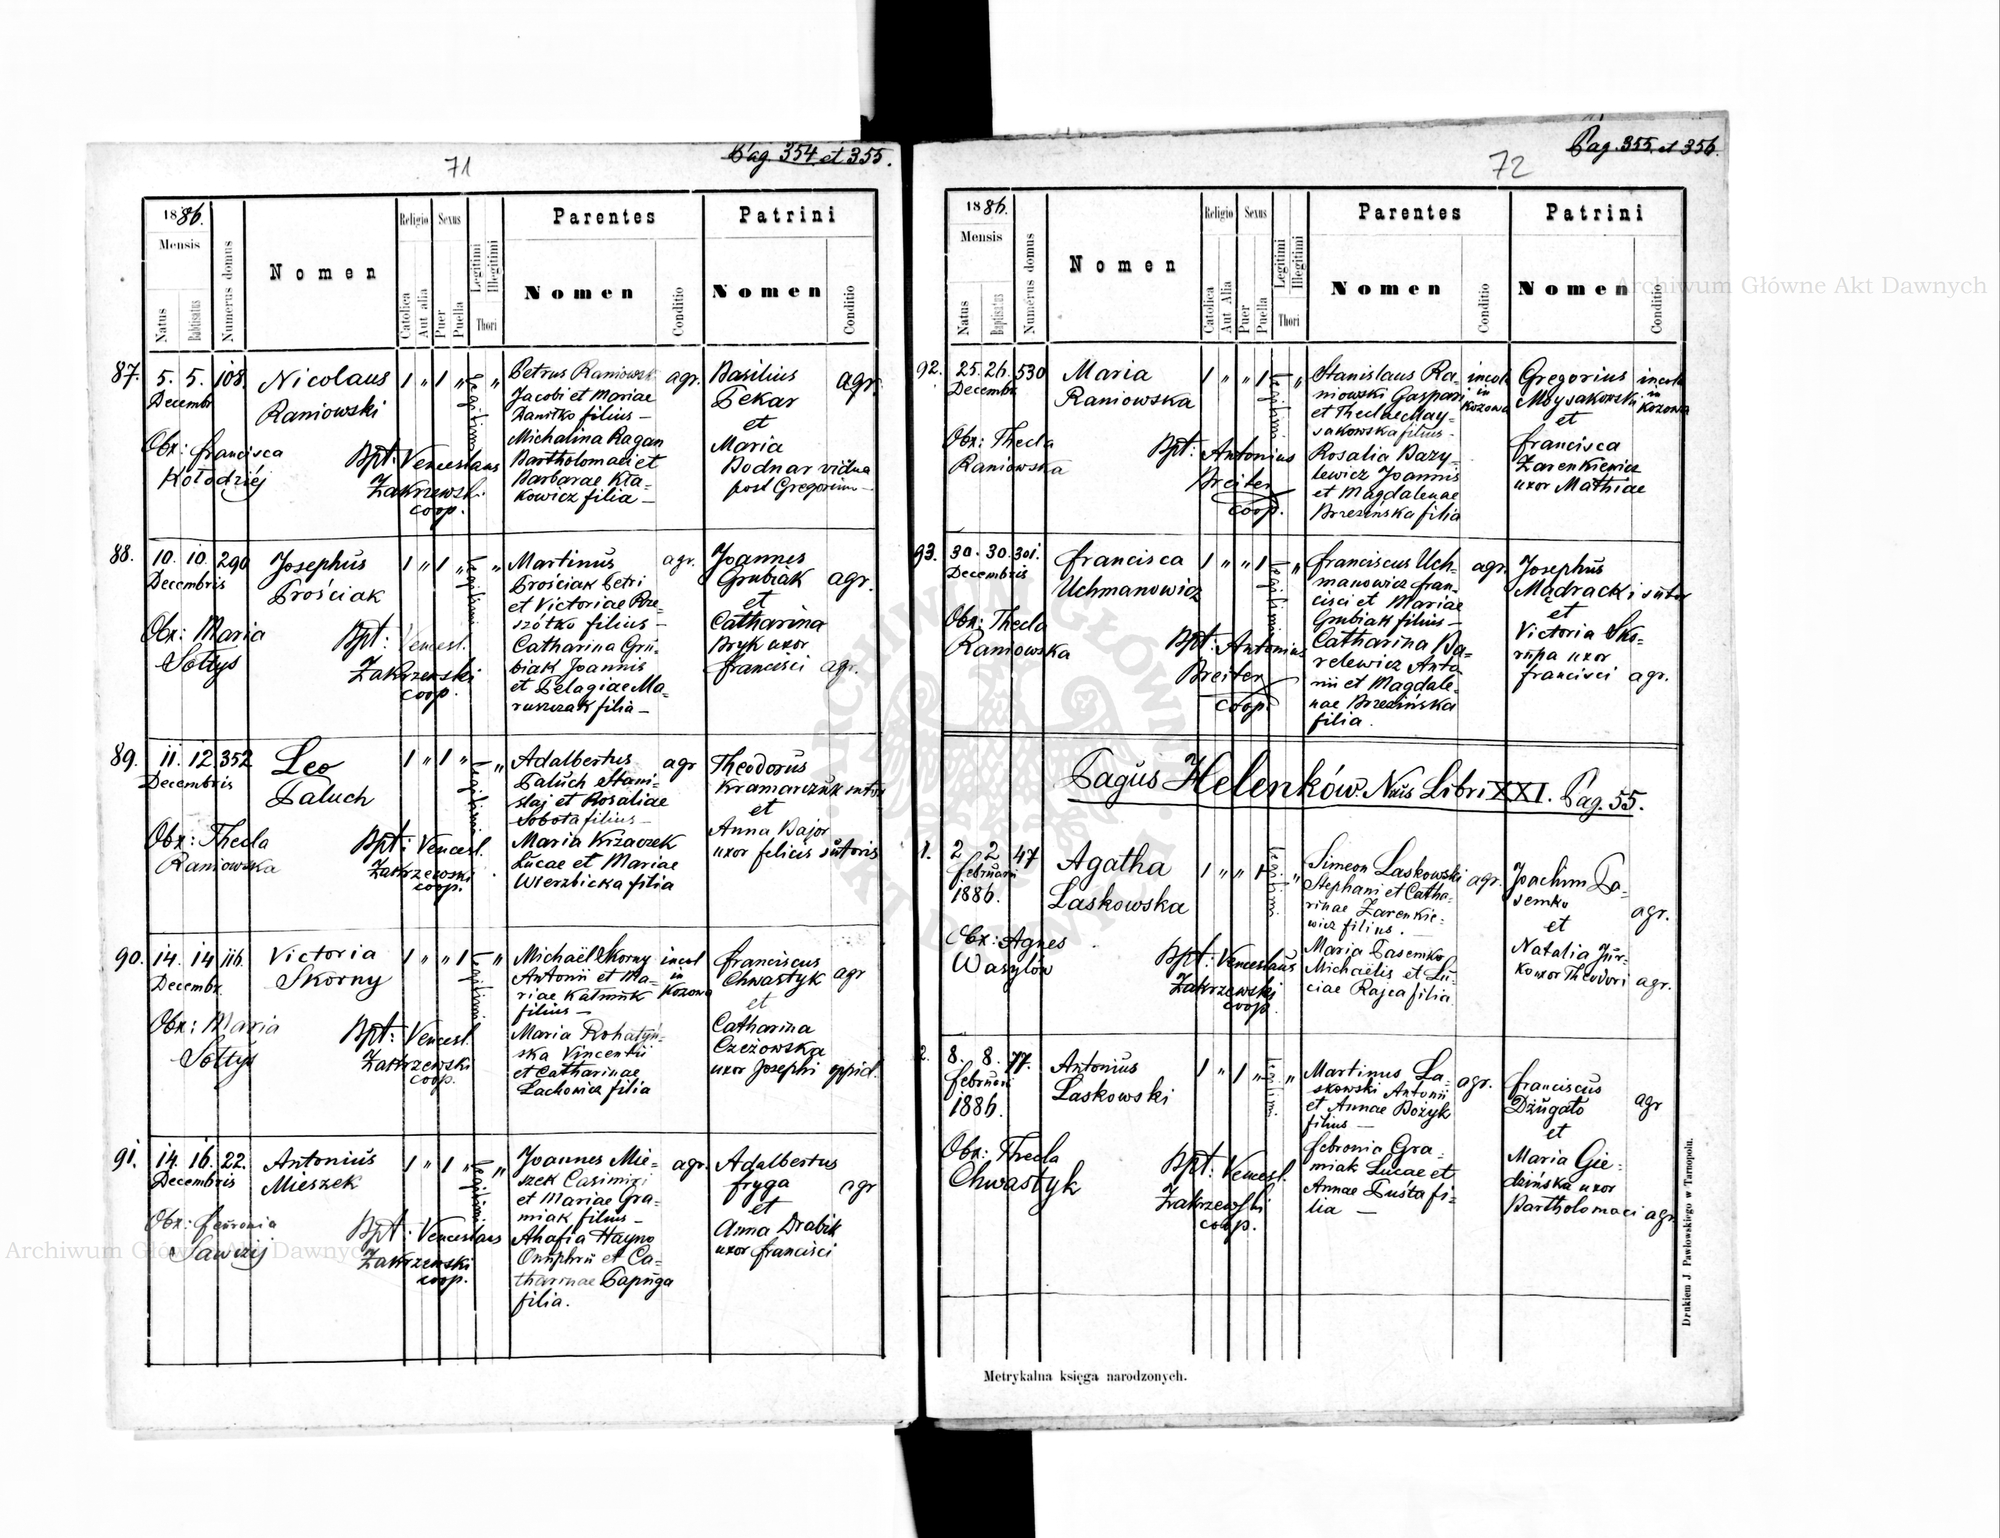 71
Pag. 354 et 355.
1886.
Mensis
Natus
Babtisatus
Numerus domus
Nomen
Religio
Catolica
Aut alia
Sexus
Puer
Puella
Legitimi
Illegitimi
Thori
Parentes
Nomen
Conditio
Patrini
Nomen
Conditio
87. 5. 5. 108.
Decembr
Nicolaus
Raniowski
Obx: Francisca
Kołodziéj
Bpt: Venceslaus
Zakrzewski
coop.
1 " 1 " Legitimi "
Petrus Raniowski
Jacobi et Mariae
filius —
Michalina Ragan
Bartholomaei et
Barbarae Kra-
kowicz filia —
agr.
Basilius
Pekar
et
Maria
Bodnar vidua
post Gregorium —
agr.
88. 10. 10. 290
Decembris
Josephus
Prościak
Obx: Maria
Sołtys
Bpt: Vencesl.
Zakrzewski
coop.
1 " 1 " Legitimi "
Martinus
Prościak Petri
et Victoriae Rze-
szótko filius —
Catharina Gru-
biak Joannis
et Pelagiae Ma-
ruszczak filia —
agr.
Joannes
Grubiak
et
Catharina
Bryk uxor
Francisci agr.
agr.
89. 11. 12. 352
Decembris
Leo
Paluch
Obx: Thecla
Raniowska
Bpt: Vencesl.
Zakrzewski
coop.
1 " 1 " Legitimi "
Adalbertus
Paluch Stani-
slai et Rosaliae
Sobota filius —
Maria Krzaczek
Lucae et Mariae
Wierzbicka filia
agr
Theodorus
Kramarczuk sutor
et
Anna Bajor
uxor Felicis sutoris
90. 14. 14 116.
Decembr.
Victoria
Skorny
Obx: Maria
Sołtys
Bpt: Vencesl.
Zakrzewski
coop.
1 " " 1 Legitimi "
Michaël Skorny
Antonii et Ma-
riae
filius —
Maria Rohatyń-
ska Vincentii
et Catharinae
Lachowicz filia
incol
in
Kozowa
Franciscus
Chwastyk
et
Catharina
Czeżowska
uxor Josephi oppid.
agr
91. 14. 16. 22.
Decembris
Antonius
Mieszek
Obx: Fevronia
Sawczij
Bpt: Venceslaus
Zakrzewski
coop.
1 " 1 " Legitimi "
Joannes Mie-
szek Casimiri
et Mariae Gra-
miak filius —
Ahafia Hayno
Onuphrii et Ca-
tharinae Papuga
filia.
agr.
Adalbertus
Fryga
et
Anna Drabik
uxor Francisci
agr
72
Pag. 355. et 356.
1886.
Mensis
Natus
Baptisatus
Numerus domus
Nomen
Religio
Catolica
Aut Alia
Sexus
Puer
Puella
Legitimi
Illegitimi
Thori
Parentes
Nomen
Conditio
Patrini
Nomen
Conditio
92. 25. 26. 530
Decembr
Maria
Raniowska
Obx: Thecla
Raniowska
Bpt: Antonius
Breiter
coop.
1 " " 1 Legitimi "
Stanislaus Ra-
niowski Gaspari
et Theclae May-
sakowska filius —
Rosalia Bazy-
lewicz Joannis
et Magdalenae
Brzezińska filia
incola
in
Kozowa
Gregorius
Moysakowski
et
Francisca
Zarenkiewicz
uxor Mathiae
incola
in
Kozowa
93. 30. 30. 301.
Decembris
Francisca
Uchmanowicz
Obx: Thecla
Raniowska
Bpt: Antonius
Breiter
coop.
1 " " 1 Legitimi "
Franciscus Uch-
manowicz Fran-
cisci et Mariae
Grubiak filius —
Catharina Ba-
relewicz Anto-
nii et Magdale-
nae Brzezińska
filia.
agr.
Josephus
Mądracki sutor
et
Victoria Sko-
rupa uxor
Francisci agr.
Pagus Helenków. Nrus Libri XXI. Pag. 55.
1. 2 2 47
Februarii
1886.
Agatha
Laskowska
Obx: Agnes
Wasylów
Bpt: Venceslaus
Zakrzewski
coop.
1 " " 1 Legitimi "
Simeon Laskowski
Stephani et Catha-
rinae Zarenkie-
wicz filius. —
Maria Pasemko
Michaëlis et Lu-
ciae Rajca filia
agr.
Joachim Pa-
semko
et
Natalia Jur-
ko uxor Theodori agr.
agr.
2. 8. 8. 77.
Februarii
1886.
Antonius
Laskowski
Obx: Thecla
Chwastyk
Bpt: Vencesl.
Zakrzewski
coop.
1 " 1 " Legitimi "
Martinus La-
skowski Antonii
et Annae Bożyk
filius —
Febronia Gra-
miak Lucae et
Annae Pusta fi-
lia —
agr.
Franciscus
Dżugało
et
Maria Gie-
dzińska uxor
Bartholomaei agr.
agr
Metrykalna księga narodzonych.
Drukiem J. Pawłowskiego w Tarnopolu.
Archiwum Główne Akt Dawnych
Archiwum Główne Akt Dawnych
ARCHIWUM GŁÓWNE AKT DAWNYCH